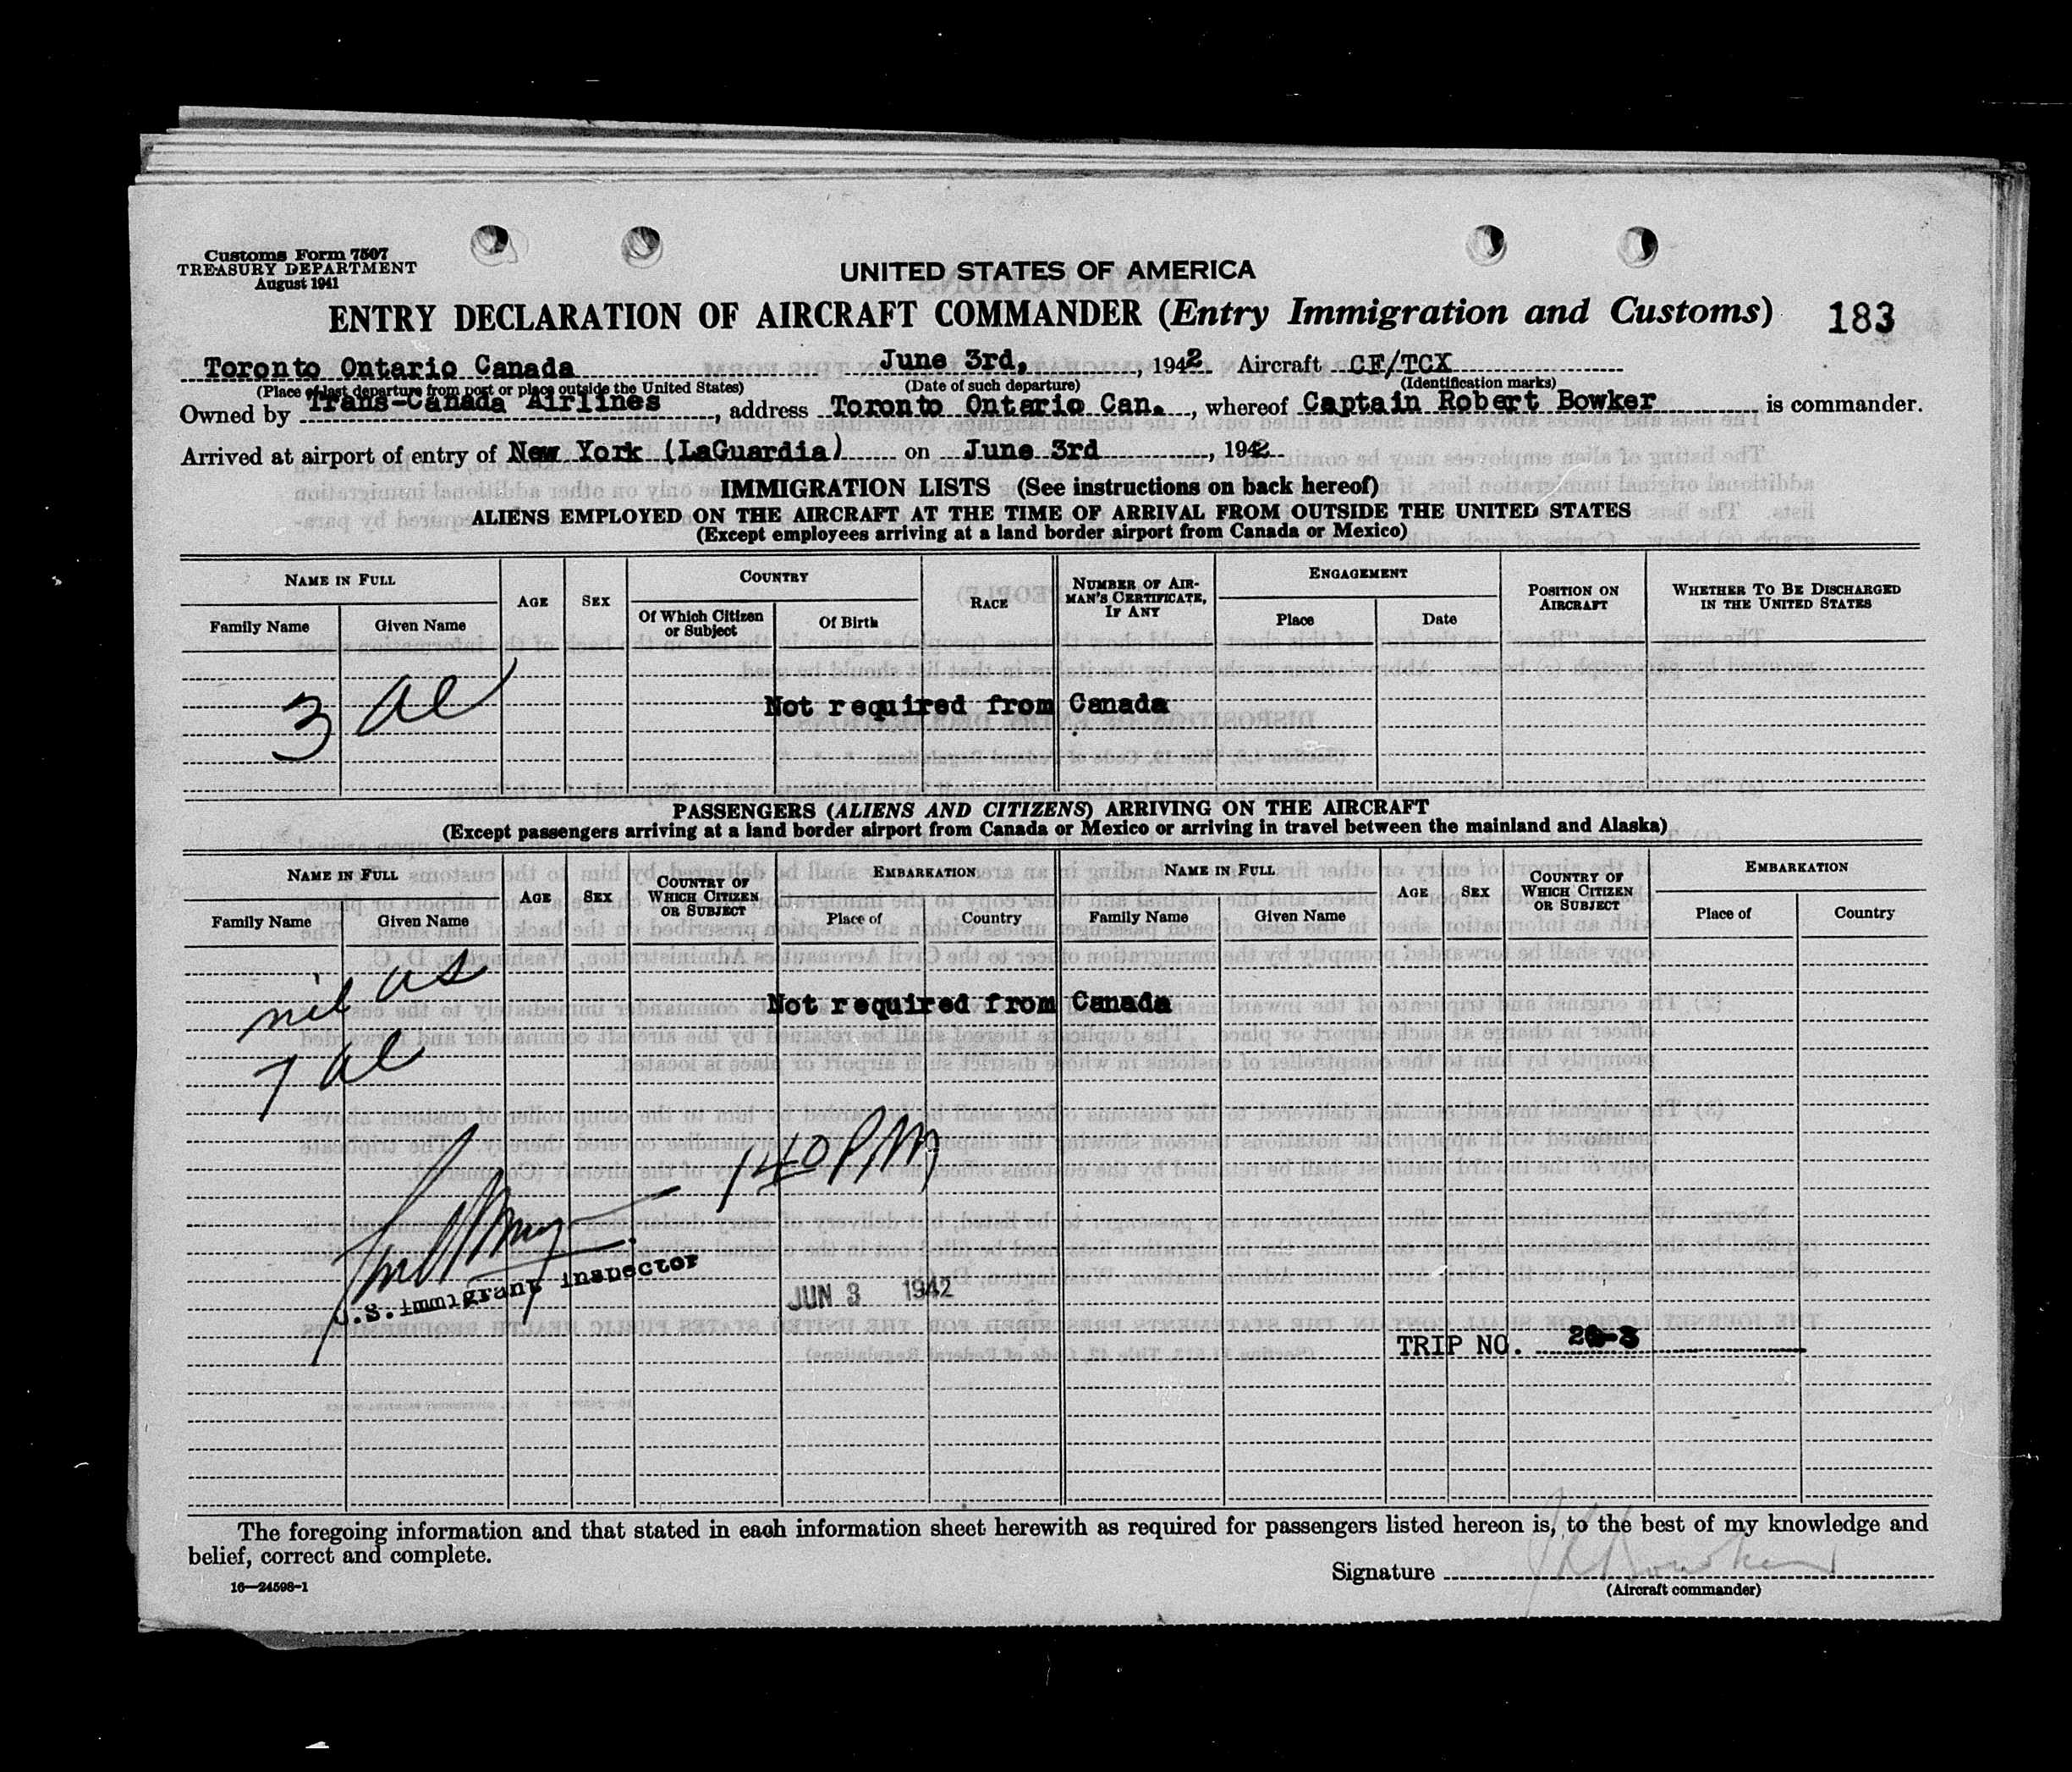 Customs Form 7507
TREASURY DEPARTMENT
August 1941
UNITED STATES OF AMERICA
ENTRY DECLARATION OF AIRCRAFT COMMANDER (Entry Immigration and Customs) 183
Toronto Ontario Canada June 3rd, , 1942 Aircraft CF/TCX
(Place of last departure from port or place outside the United States) (Date of such departure) (Identification marks)
Owned by Trans-Canada Airlines , address Toronto Ontario Can. , whereof Captain Robert Bowker is commander.
Arrived at airport of entry of New York (LaGuardia) on June 3rd , 1942
IMMIGRATION LISTS (See instructions on back hereof)
ALIENS EMPLOYED ON THE AIRCRAFT AT THE TIME OF ARRIVAL FROM OUTSIDE THE UNITED STATES
(Except employees arriving at a land border airport from Canada or Mexico)
NAME IN FULL AGE SEX COUNTRY RACE NUMBER OF AIRMAN'S CERTIFICATE, IF ANY ENGAGEMENT POSITION ON AIRCRAFT WHETHER TO BE DISCHARGED IN THE UNITED STATES
Family Name Given Name Of Which Citizen or Subject Of Birth Place Date
3 al
Not required from Canada
PASSENGERS (ALIENS AND CITIZENS) ARRIVING ON THE AIRCRAFT
(Except passengers arriving at a land border airport from Canada or Mexico or arriving in travel between the mainland and Alaska)
NAME IN FULL AGE SEX COUNTRY OF WHICH CITIZEN OR SUBJECT EMBARKATION NAME IN FULL AGE SEX COUNTRY OF WHICH CITIZEN OR SUBJECT EMBARKATION
Family Name Given Name Place of Country Family Name Given Name Place of Country
nil us
Not required from Canada
7 al
140 PM
U.S. Immigrant Inspector
JUN 3 1942
TRIP NO.
The foregoing information and that stated in each information sheet herewith as required for passengers listed hereon is, to the best of my knowledge and
belief, correct and complete.
Signature
16—24598-1
(Aircraft commander)